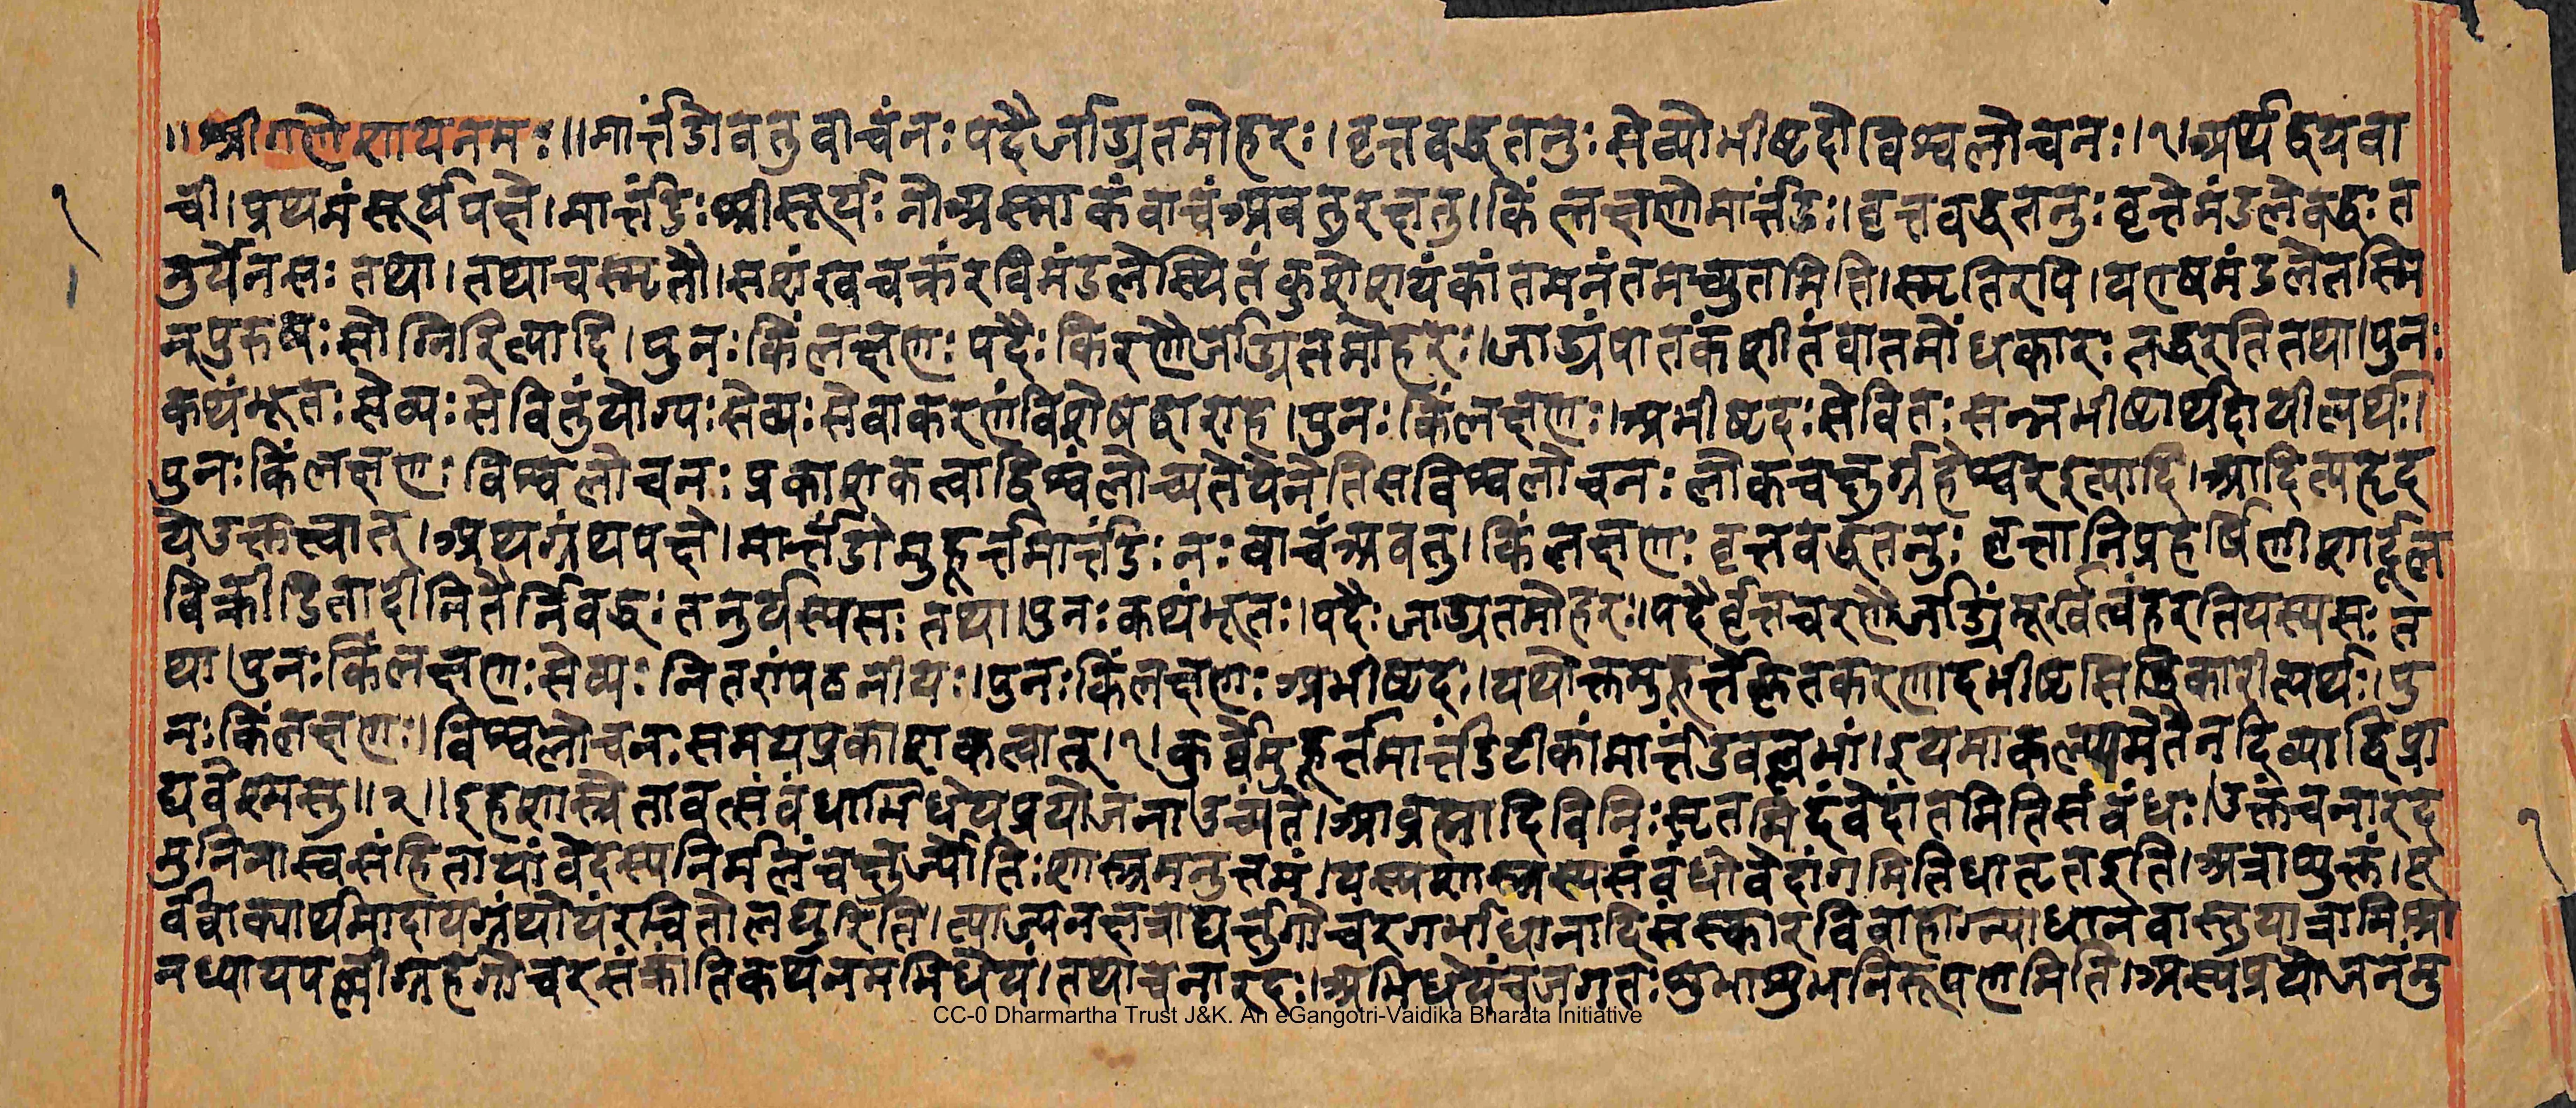 ॥श्रीगणेशायनमः॥मार्त्तंडोवतुवाचंनः पदैर्जाड्यतमोहरः।वृत्तबद्धतनुः सेव्योभीष्टदोविश्वलोचनः।१।अर्थद्वयवा
ची।प्रथमंसूर्यपक्षे।मार्त्तंडः श्रीसूर्यः नोअस्माकंवाचंअवतुरक्षतु।किंलक्षणोमार्त्तंडः।वृत्तबद्धतनुः वृत्तेमंडलेबद्धः त
नुर्येनसः तथा।तथाचस्मृतौ।सशंखचक्रंरविमंडलेस्थितंकुशेशयंकांतमनंतमच्युतमिति।स्मृतिरपि।यएषमंडलेतस्मि
न्पुरुषः सोग्निरित्यादि।पुनः किंलक्षणः पदैः किरणैर्जाड्यतमोहरः।जाड्यंपातकंशीतंवातमोंधकारः तद्धरतितथा।पुनः
कथंभूतः सेव्यः सेवितुंयोग्यः सेव्यः सेवाकरणंविशेषद्वाराह।पुनः किंलक्षणः।अभीष्टदः सेवितः सन्नभीष्टार्थदायीत्यर्थः।
पुनः किंलक्षणः विश्वलोचनः प्रकाशकत्वाद्विश्वंलोच्यतेयेनेतिसविश्वलोचनः लोकचक्षुर्ग्रहेश्वरइत्यादि।आदित्यहृद
येउक्तत्वात्।अथग्रंथपक्षे।मार्त्तंडोमुहूर्त्तमार्त्तंडः नः वाचंअवतु।किंलक्षणः वृत्तबद्धतनुः वृत्तानिप्रहर्षिणीशार्दूल
विक्रीडितादीनितैर्निबद्धः तनुर्यस्यसः तथा।पुनः कथंभूतः।पदैः जाड्यतमोहरः।पदैर्वृत्तचरणैर्जाड्यंमूर्खत्वंहरतियस्यसः त
था।पुनः किंलक्षणः सेव्यः नितरांपठनीयः।पुनः किंलक्षणः अभीष्टदः।यथोक्तमुहूर्त्तेकृतकरणादभीष्टसिद्धिकारीत्यर्थः।पु
नः किंलक्षणः।विश्वलोचनः समयप्रकाशकत्वात्।१।कुर्वेमुहूर्त्तमार्त्तंडटीकांमार्त्तंडवल्लभां।इयमाकल्पमेतेनदिव्याद्विप्रा
द्यवेश्मसु॥२॥इहशास्त्रेतावत्संबंधाभिधेयप्रयोजनाउच्यंते।आब्रह्मादिविनिःसृतमिदंवेदांतमितिसंबंधः।उक्तंचनारद
मुनिनास्वसंहितायांवेदस्यनिर्मलंचक्षुर्ज्योतिः शास्त्रमनुत्तमं।यस्यशास्त्रस्यसंबंधोवेदांगमितिधातृतइति।अत्राप्युक्तं।पू
र्ववाक्यार्थमादायग्रंथोयंरचितोलघुरिति।त्याज्यनक्षत्राद्यर्त्तुगोचरगर्भाधानादिसंस्कारविवाहाग्न्याधानवास्तुयात्रामिश्रा
नध्यायपल्लीग्रहगोचरसंक्रांतिकथनमभिधेयं।तथाचनारदः।अभिधेयंचजगतः शुभाशुभनिरूपणमिति।अस्यप्रयोजनंमु
१
१
CC-0 Dharmartha Trust J&K. An eGangotri-Vaidika Bharata Initiative